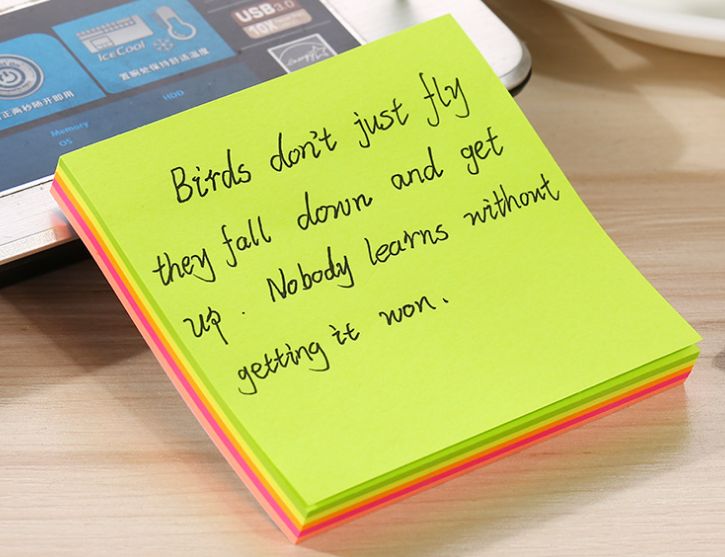 USB3.0
IceCool
HDD
Memory
OS
Birds don't just fly
they fall down and get
up. Nobody learns without
getting it won.